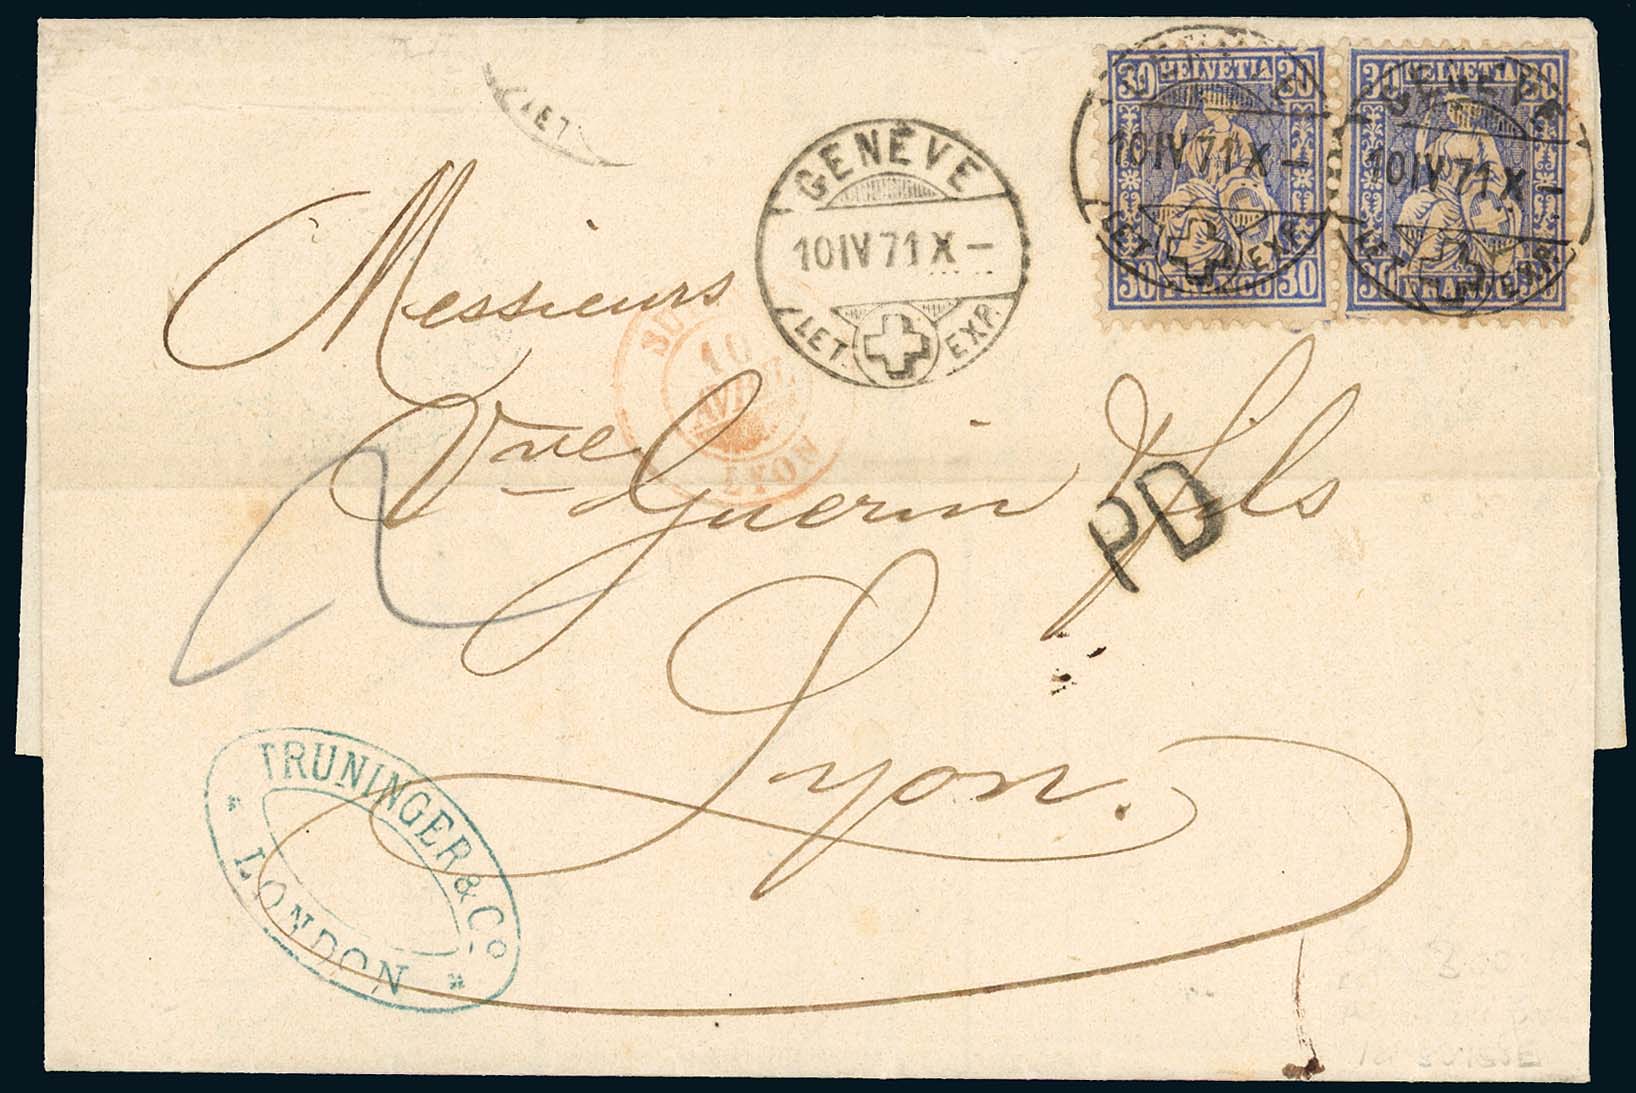 30 HELVETIA 30
30 FRANCO 30
30 HELVETIA 30
30 FRANCO 30
GENÈVE
10 IV 71 X –
LET. EXP.
GENÈVE
10 IV 71 X –
LET. EXP.
GENÈVE
10 IV 71 X –
LET. EXP.
LET
10
LYON
Messieurs
Vve Guerin & fils
PD
2
Lyon.
TRUNINGER & Co
* LONDON *
SUISSE